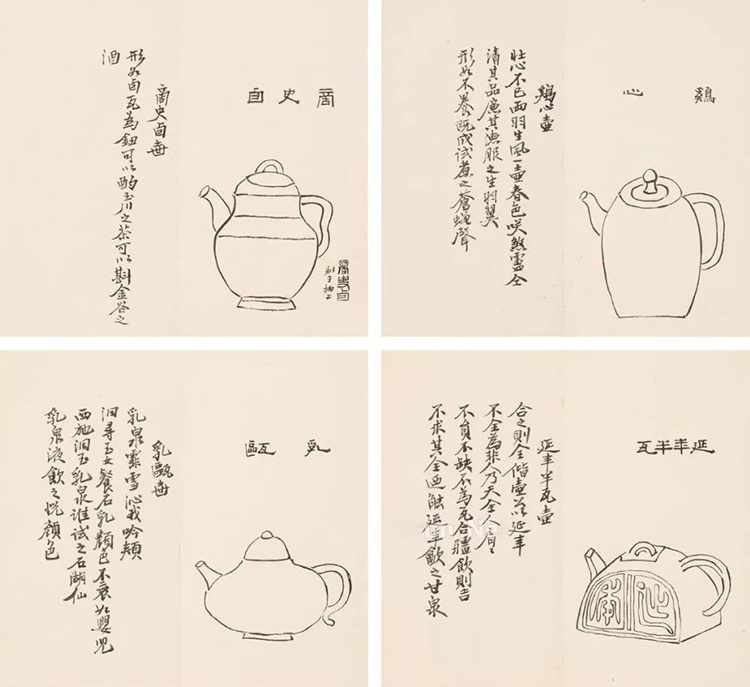 商史卣
商史卣壺
形如卣瓦為鈕可以酌玉川之茶可以斟金谷之
酒
商史卣
刻于柄上
鷄心
鷄心壺
壯心不已兩羽生風一壺春色咲煞
清其品廉其漁服之生羽翼
形如不養既成試煮之蒼蠅聲
乳甌
乳甌壺
乳泉霏雪沁我吟頰
洞尋玉女餐石乳顏色不衰如嬰兒
西施洞玉乳泉誰試之石湖仙
乳泉液飲之恍顏色
延年半瓦
延年半瓦壺
合之則全偕壺公以延年
不全為非人乃天全人
不負不缺不為瓦合疆飲則吉
不求其全迺能延年飲之甘泉